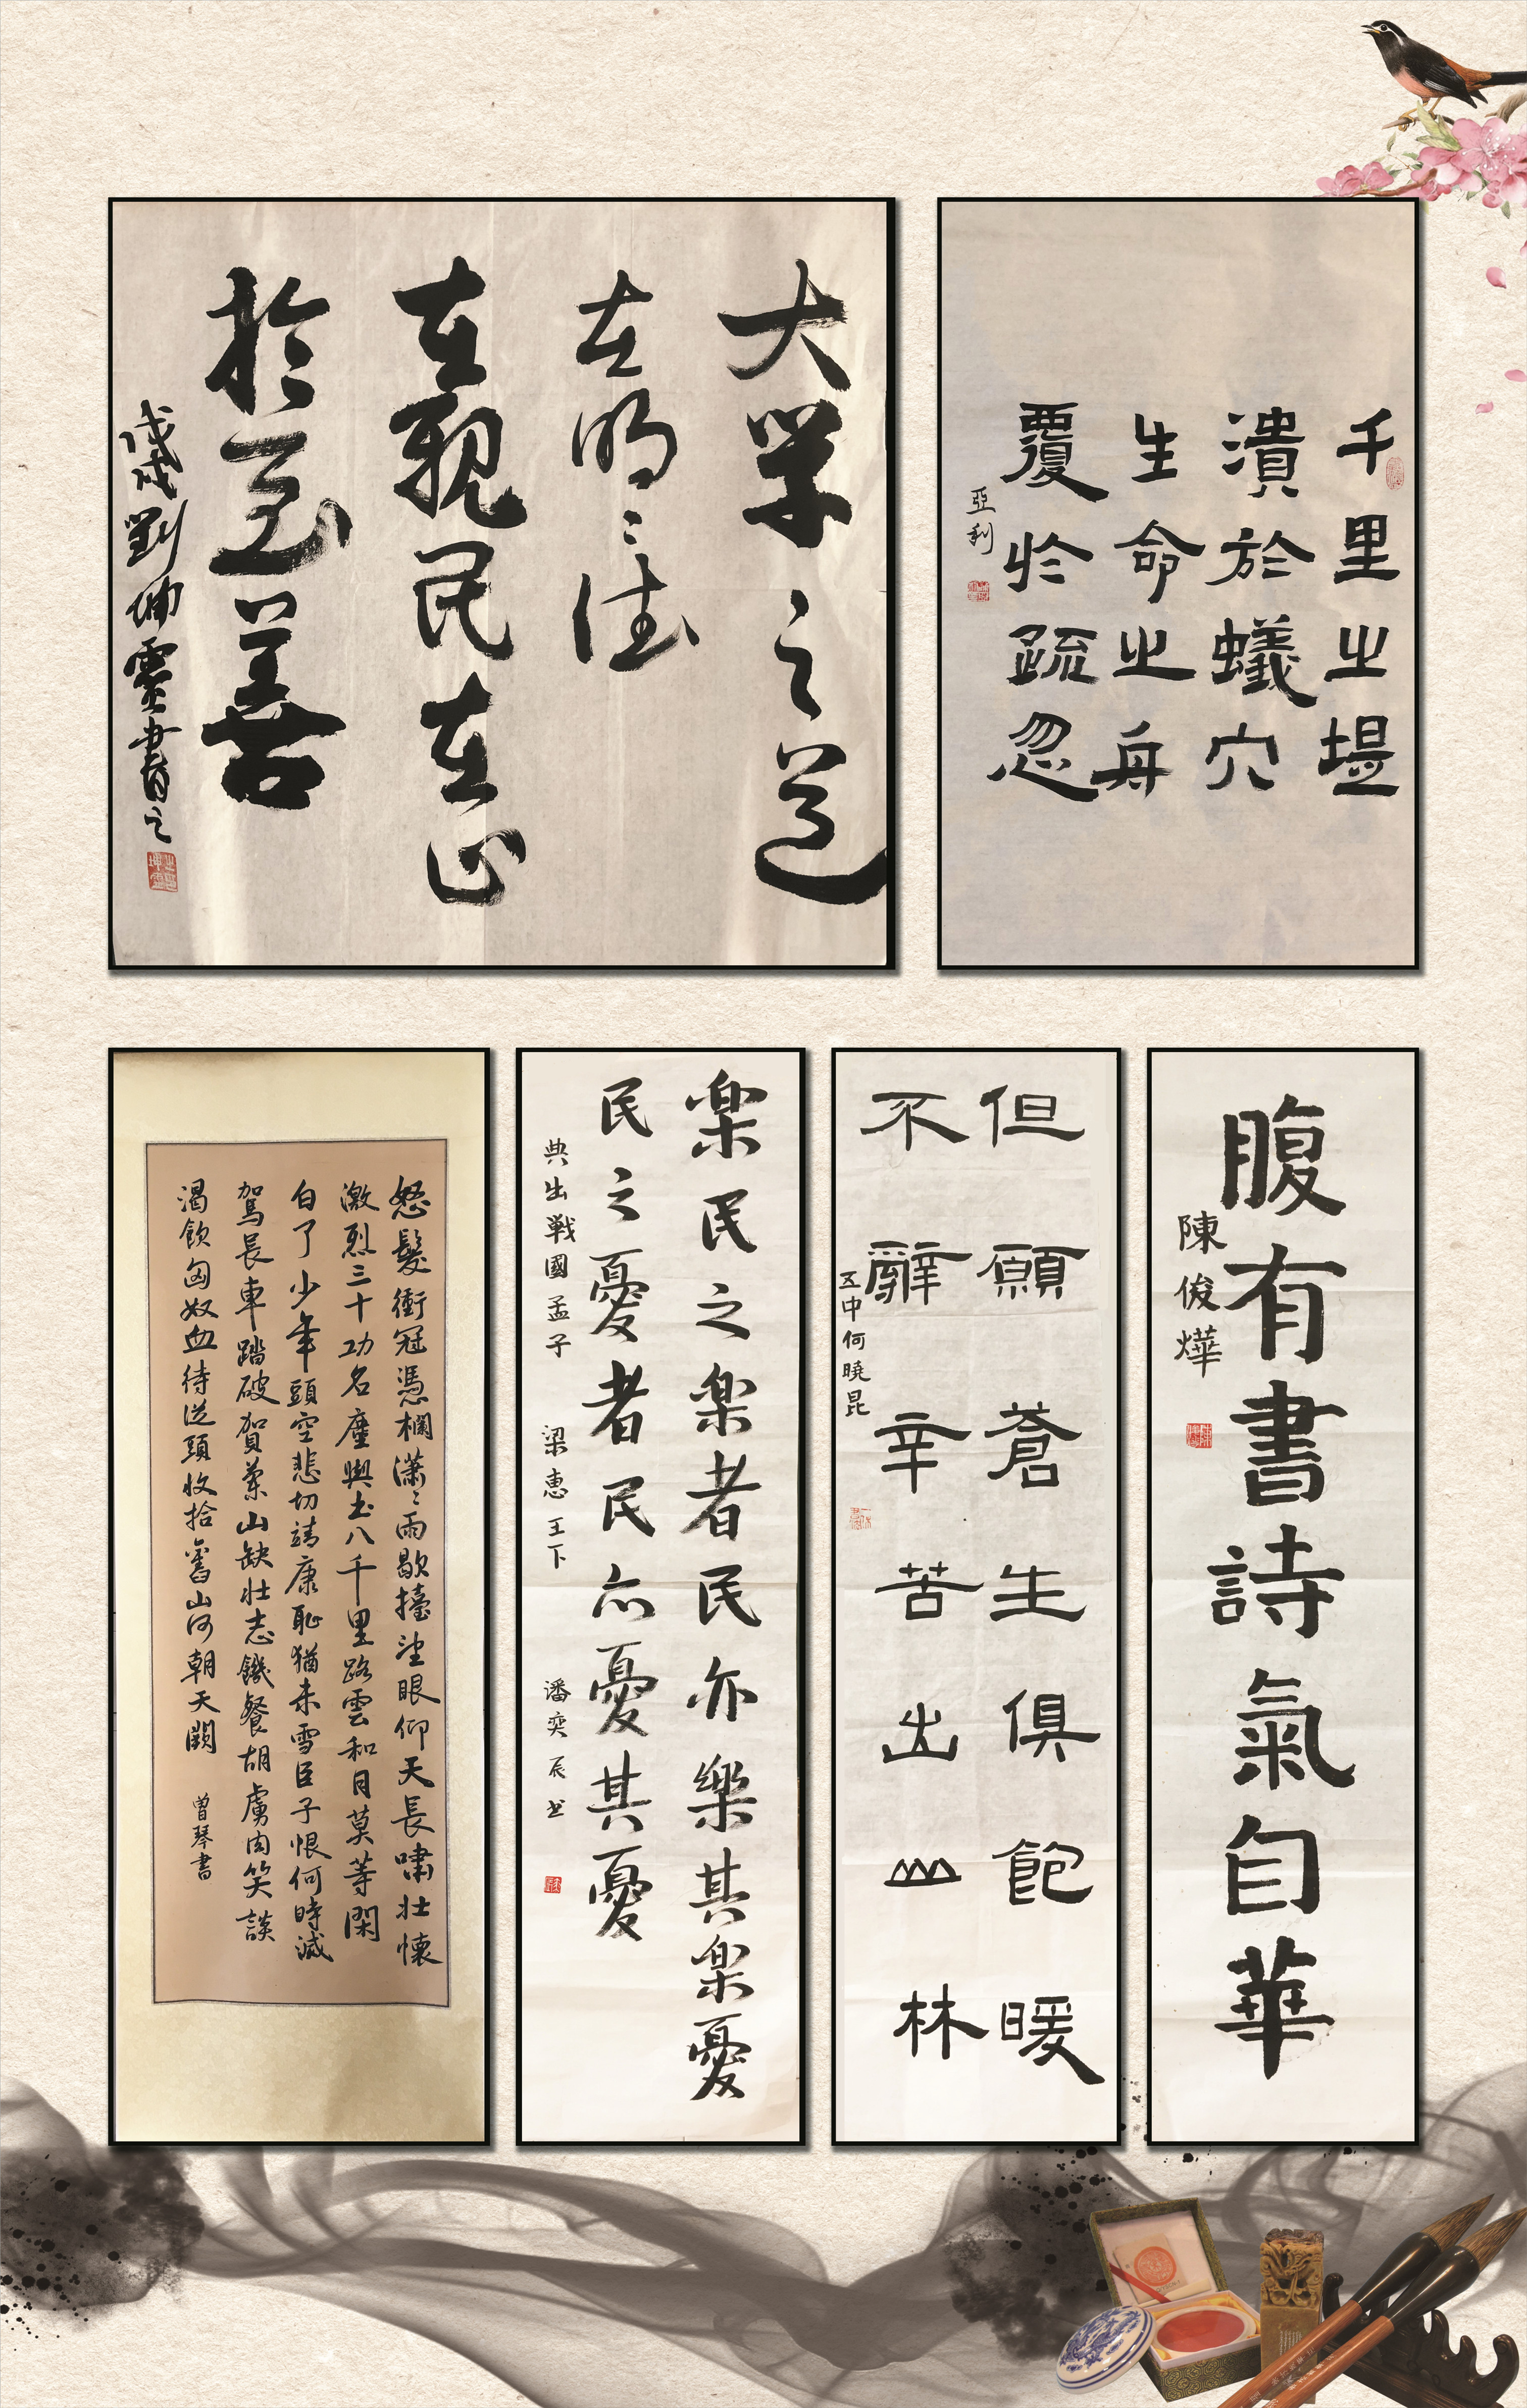 大学之道
在明〻德
在親民在止
於至善
戊戌劉坤靈書之
千里之堤
潰於蟻穴
生命之舟
覆於疏忽
亞利
怒髮衝冠憑欄瀟〻雨歇擡望眼仰天長嘯壮懷
激烈三十功名塵與土八千里路雲和月莫等閑
白了少年頭空悲切靖康恥猶未雪臣子恨何時滅
駕長車踏破賀蘭山缺壮志饑餐胡虜肉笑談
渴飲匈奴血待從頭收拾舊山河朝天闕
曾琴書
楽民之楽者民亦樂其楽憂
民之憂者民亦憂其憂
典出戦國孟子 梁惠王下 潘奕辰书
但願蒼生俱飽暖
不辭辛苦出山林
五中何曉昆
腹有書詩氣自華
陳俊燁